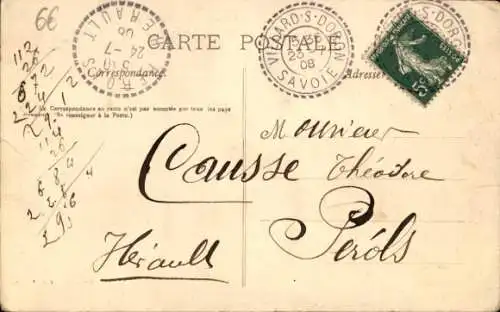 66
CARTE POSTALE
Correspondance
Adresse
La Correspondance au recto n'est pas acceptée par tous les pays
(Se renseigner à la Poste.)
HERAULT
24-7
08
VILLARD-S-DORON
23
08
SAVOIE
S-DORON
5
Monsieur
Causse Théodore
Pérols
Hérault
112
26
672
224
2912
114
26
684